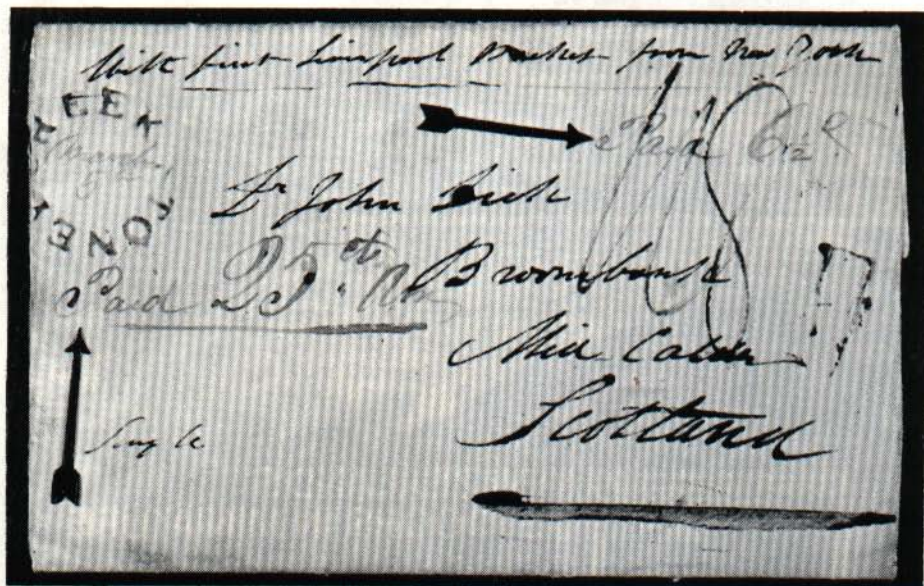 With first Liverpool Packet from New York
Paid 6½
STONEY CREEK
March
5
Dr John Dick
Paid 25 cts
Broombank
Mid Calder
Scotland
Single